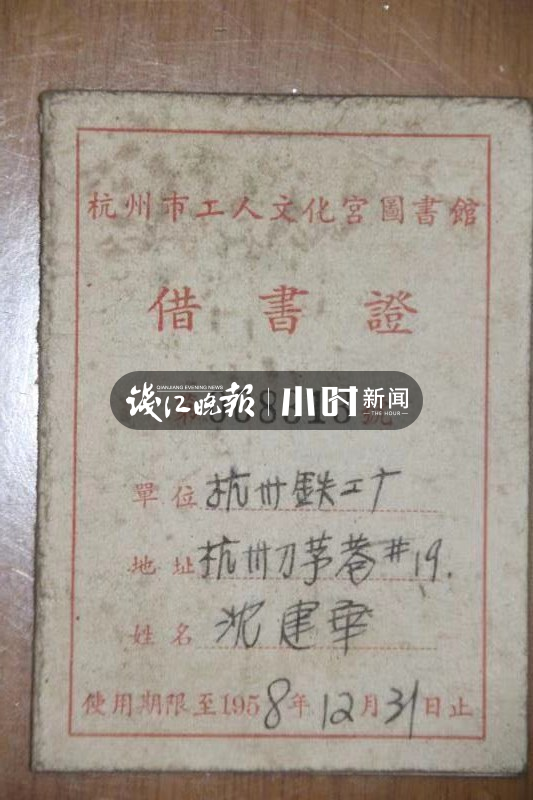 杭州市工人文化宮圖書館
借書證
第 號
QIANJIANG EVENING NEWS
钱江晚报 小时新闻
THE HOUR
單位 杭州鉄工厂
地址 杭州刀茅巷#19.
姓名 沈建華
使用期限至1958年12月31日止